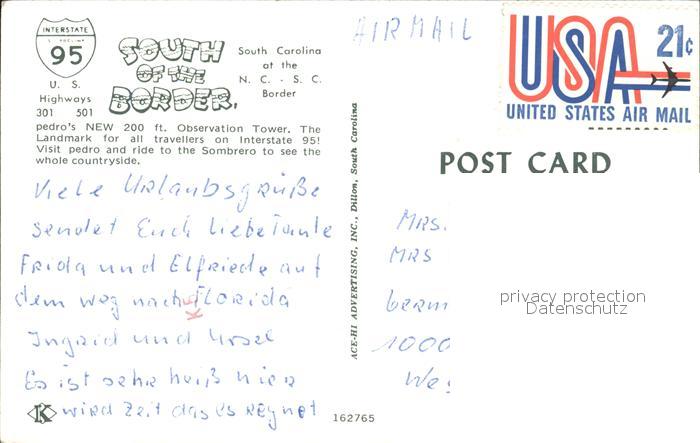 INTERSTATE
95
U. S.
Highways
301 501
SOUTH
OF THE
BORDER.
South Carolina
at the
N. C. - S. C.
Border
pedro's NEW 200 ft. Observation Tower. The
Landmark for all travellers on Interstate 95!
Visit pedro and ride to the Sombrero to see the
whole countryside.
Viele Urlaubsgrüße
sendet Euch liebe Tante
Frida und Elfriede auf
dem weg nach Florida
Ingrid und Ursel
Es ist sehr heiß hier
wird Zeit das es regnet
K
162765
ACE-HI ADVERTISING, INC., Dillon, South Carolina
AIR MAIL
USA 21c
UNITED STATES AIR MAIL
POST CARD
MRS.
MRS
Germ
1000
We
privacy protection
Datenschutz